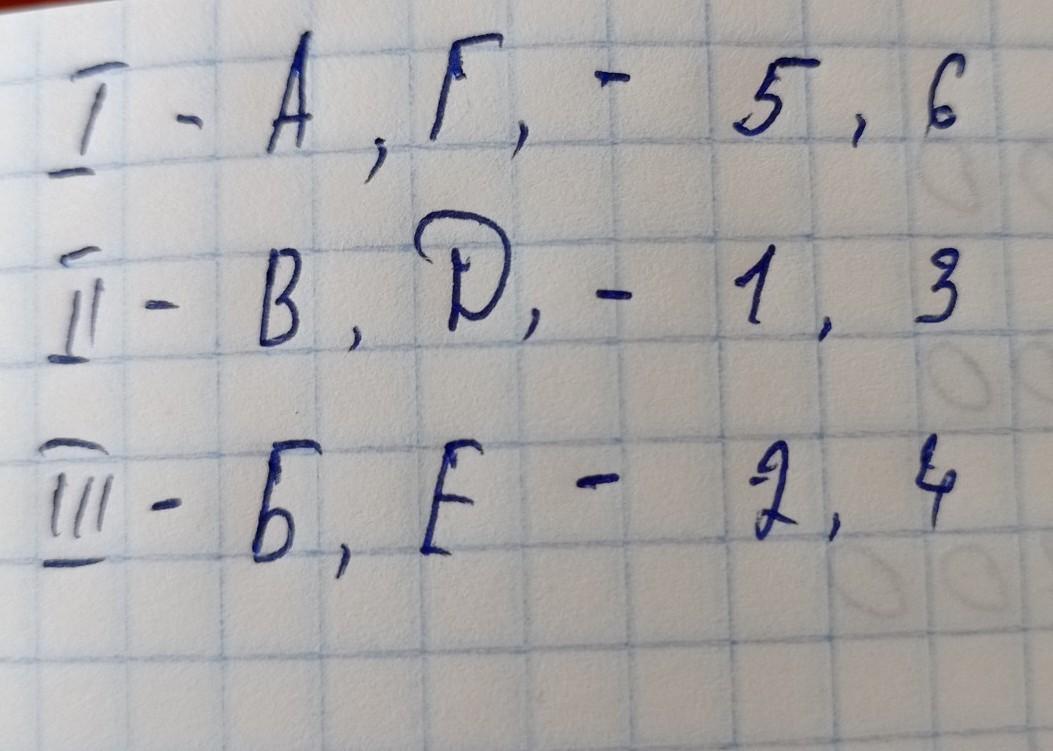 I - А, Г, - 5, 6
II - В, Д, - 1, 3
III - Б, Е - 2, 4